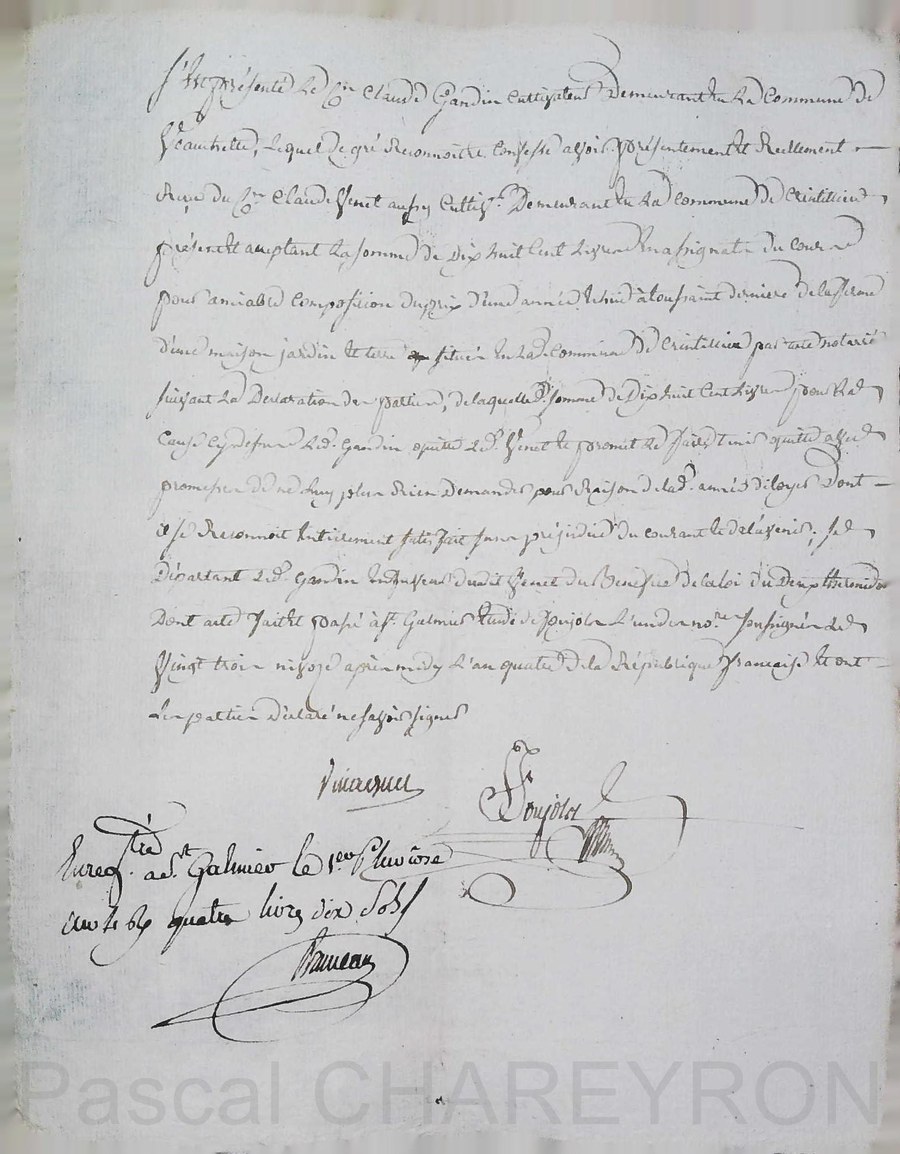 S'est présenté le Cen Claude Gandin cultivateur Demeurant en la Commune de
Veauchette, lequel de gré Reconnoit et Confesse avoir présentement et Reellement
Reçu du Cen Claude Venet aussy Cultivr. Demeurant en la Commune de Crintillieu
présent et acceptant la somme de Dix huit Cent Livres En assignats du cours
pour amiable Composition du prix d'une année échue à toussaint dernière de la ferme
d'une maison jardin et terre situés en lad. Commune de Crintillieu par acte notarié
suivant la Déclaration des parties, de laquelle d. somme de Dix huit Cent Livres pour la
Cause cy dessus led. Gandin quitte led. Venet et promet le faire tenir quitte avec
promesse de ne luy plus Rien Demander pour Raison de lad. année de loyer Dont
il se Reconnoit Entierement satisfait sans préjudice du courant et de l'avenir; se
Départant led. Gandin en faveur dudit Venet du Bénéfice de la loi du Deux thermidor
Dont acte fait et passé à St. Galmier Etude de Pujolos l'un des nores soussignés le
Vingt trois nivoze après midy L'an quatre de la République française et ont
les parties déclaré ne savoir signer
Pujolos
Enregtré. a St. Galmier le 1er Pluviose
an 4e R/ quatre livres dix Sols